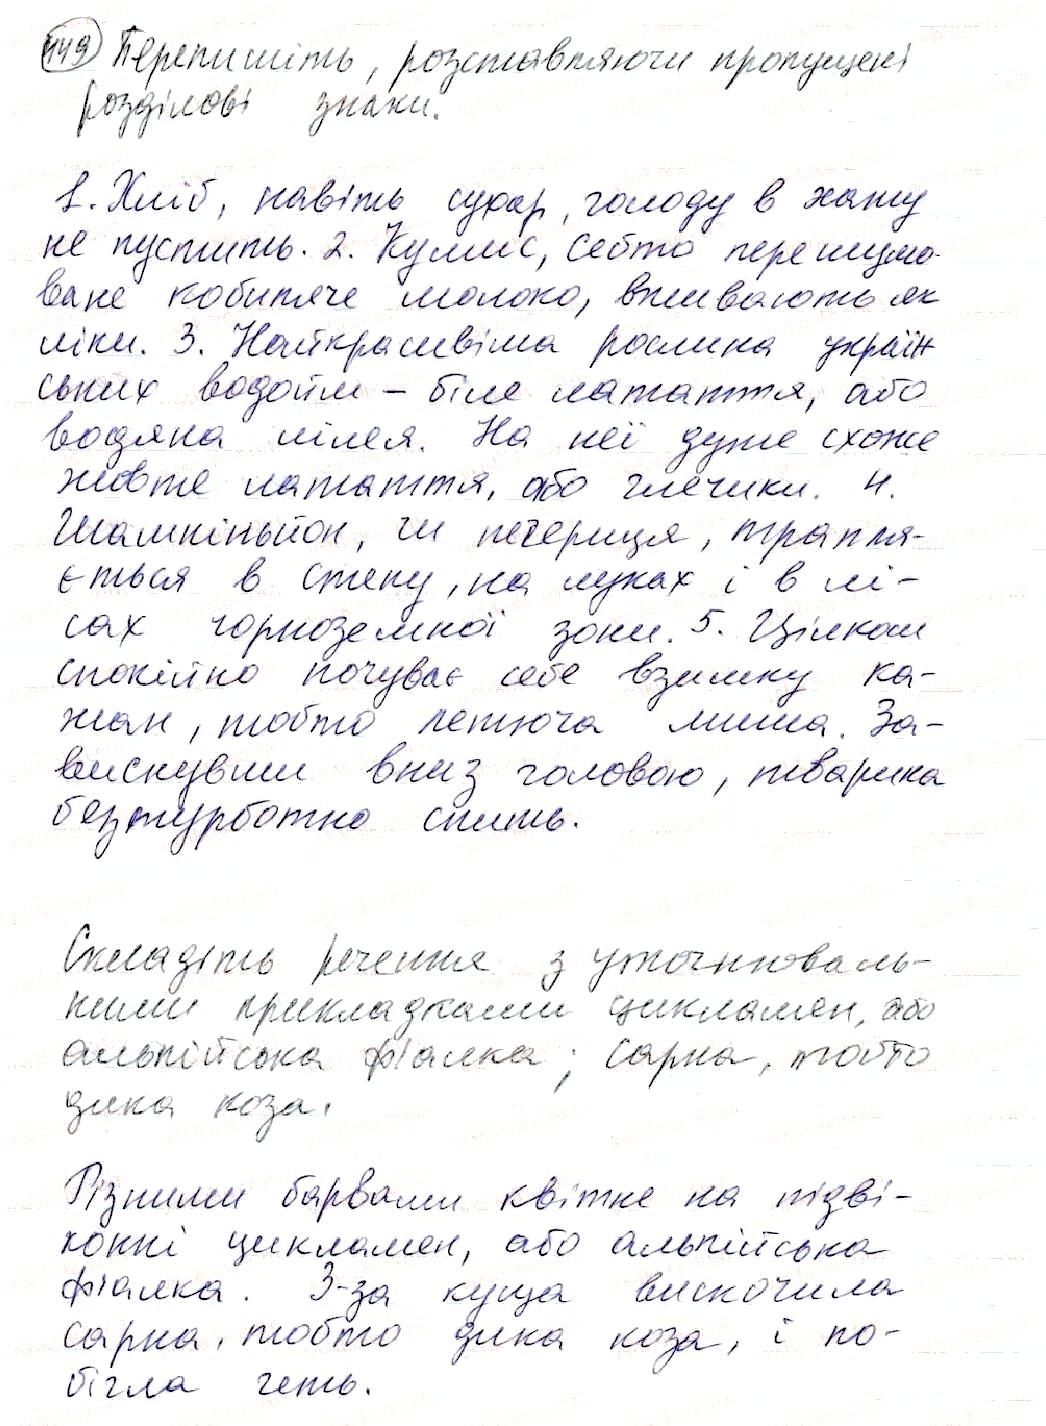 449 Перепишіть, розставляючи пропущені
розділові знаки.
1. Хліб, навіть сухар, голоду в хату
не пустить. 2. Кумис, себто перешумо-
ване кобиляче молоко, вживають як
ліки. 3. Найкрасивіша рослина україн
ських водойм – біле латаття, або
водяна лілея. На неї дуже схоже
жовте латаття, або глечики. 4.
Шампіньйон, чи печериця, трапля-
ється в степу, на луках і в лі-
сах чорноземної зони. 5. Цілком
спокійно почуває себе взимку ка-
жан, тобто летюча миша. За-
виснувши вниз головою, тварина
безтурботно спить.
Складіть речення з уточнюваль-
ними прикладками цикламен, або
альпійська фіалка; сарна, тобто
дика коза.
Різними барвами квітне на підві-
конні цикламен, або альпійська
фіалка. З-за куща вискочила
сарна, тобто дика коза, і по-
бігла геть.